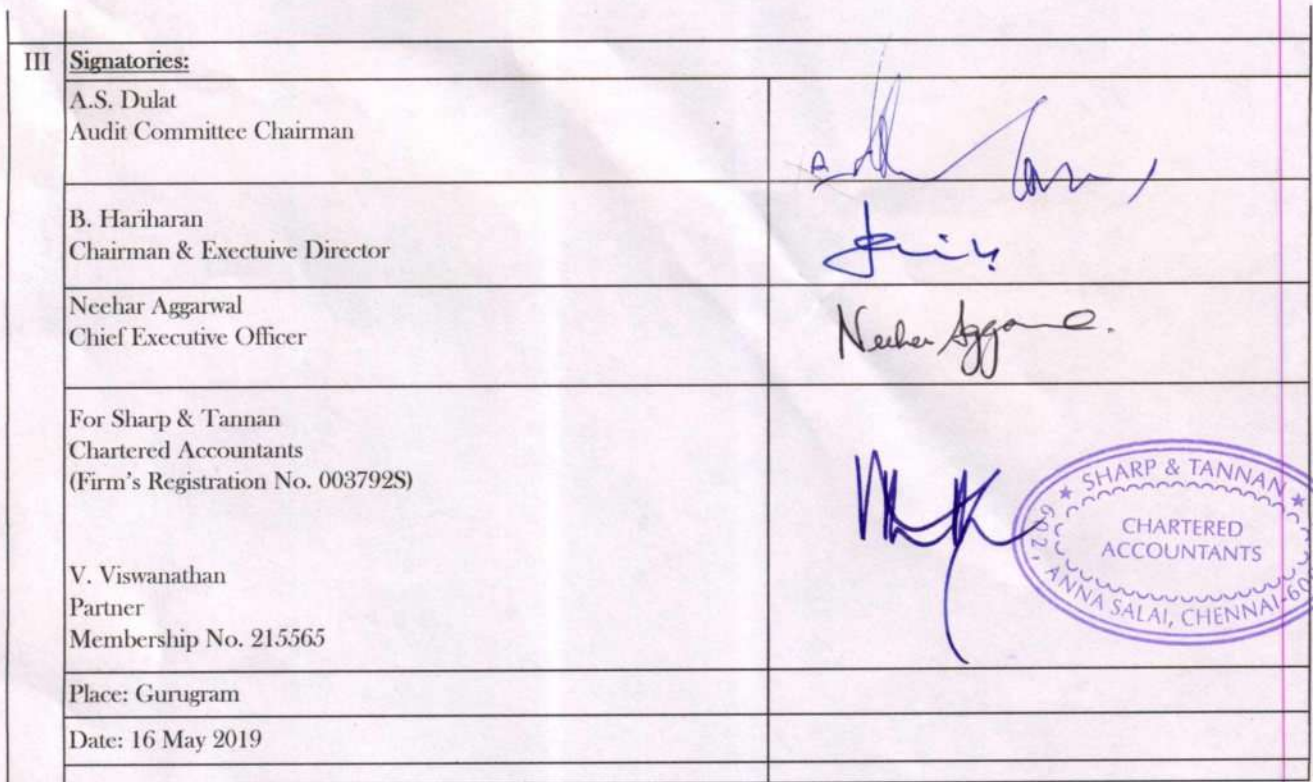 III Signatories:
A.S. Dulat
Audit Committee Chairman
B. Hariharan
Chairman & Exectuive Director
Neehar Aggarwal
Chief Executive Officer
Neehar Aggarwal.
For Sharp & Tannan
Chartered Accountants
(Firm's Registration No. 003792S)
V. Viswanathan
Partner
Membership No. 215565
★ SHARP & TANNAN ★
CHARTERED
ACCOUNTANTS
ANNA SALAI, CHENNAI-
Place: Gurugram
Date: 16 May 2019